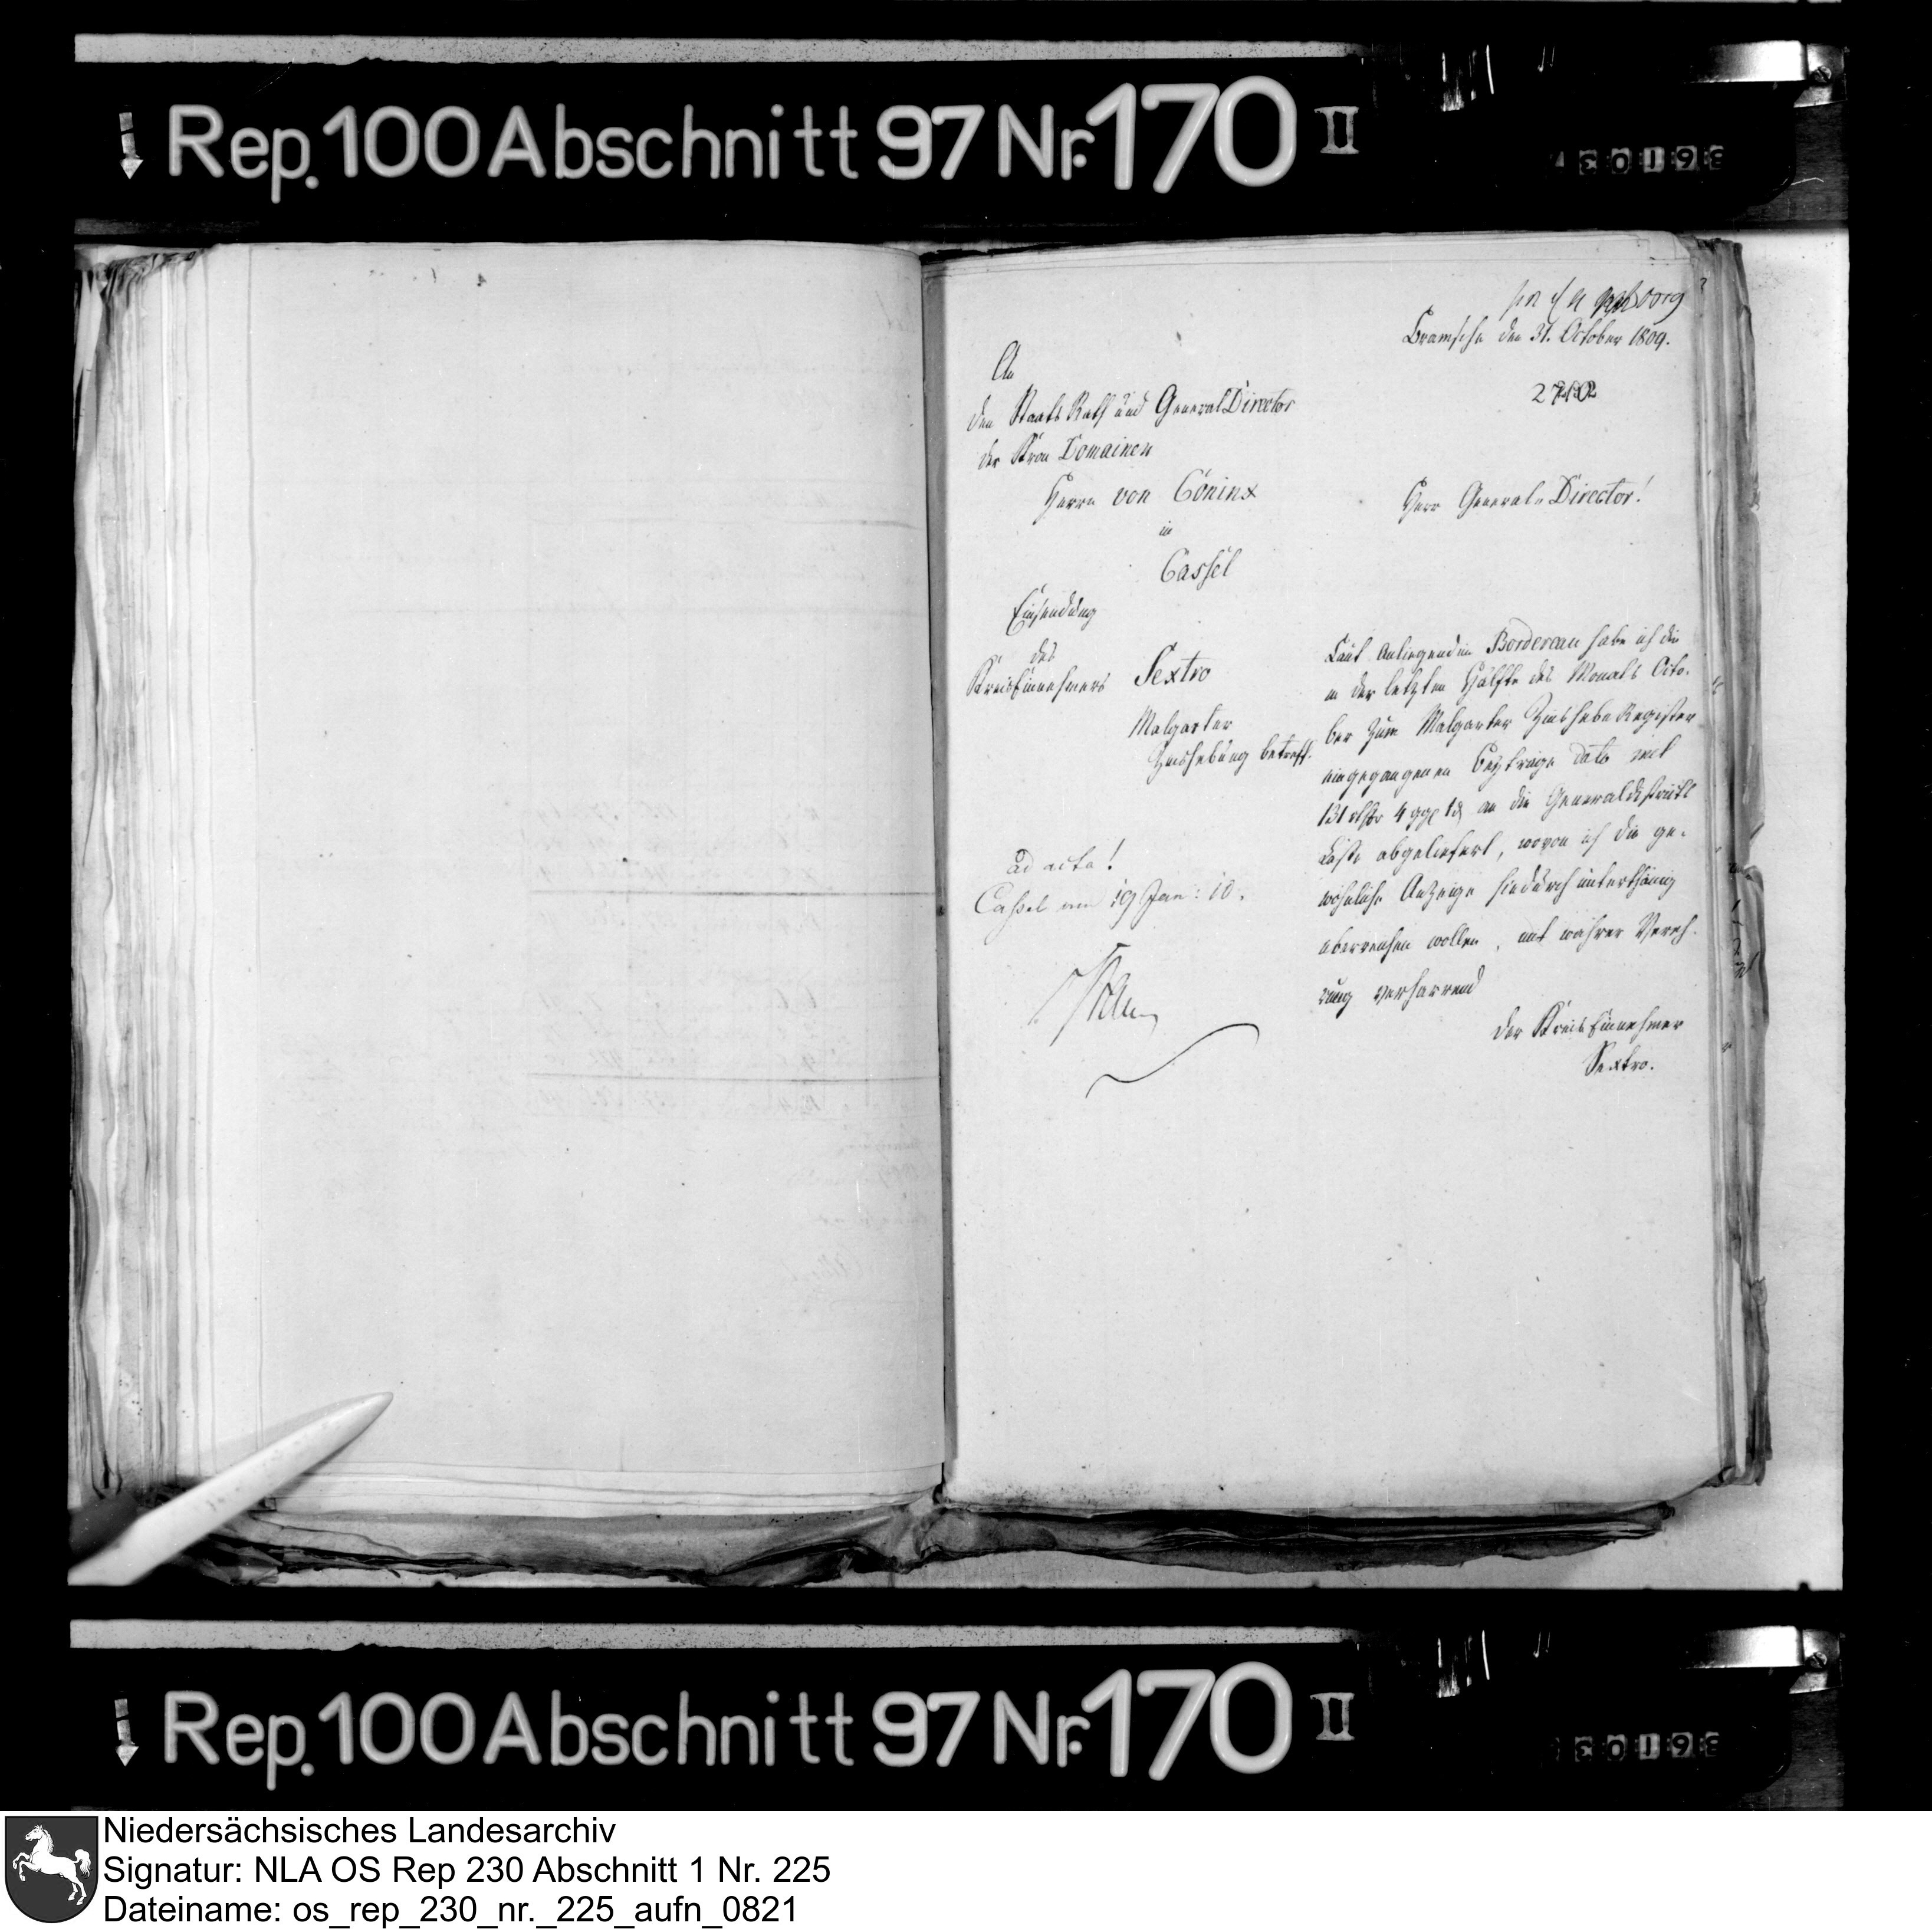 Rep. 100 Abschnitt 97 Nr. 170 II
Bramsche den 31. October 1809.
An
den Staats Rath und General Director
der Kron Domainen
Herrn von Coninx
in
Cassel
Herr General-Director!
Einsendung
des
Kreis Einnehmers Sextro
Malgarter
Zinshebung betreff.
Laut anliegendem Bordereau habe ich die
in der letzten Hälfte des Monats Octo-
ber zum Malgarter Zinshebe Register
eingegangenen Beyträge dato mit
131 rthlr 4 ggr 1 d an die Generaldistricts
Casse abgeliefert, wovon ich die ge-
wöhnliche Anzeige hiedurch unterthänig
überreichen wollen, mit wahrer Vereh-
rung verharrend
der Kreis Einnehmer
Sextro.
ad acta!
Cassel am 19 Jan: 10.
Rep. 100 Abschnitt 97 Nr. 170 II
Niedersächsisches Landesarchiv
Signatur: NLA OS Rep 230 Abschnitt 1 Nr. 225
Dateiname: os_rep_230_nr._225_aufn_0821